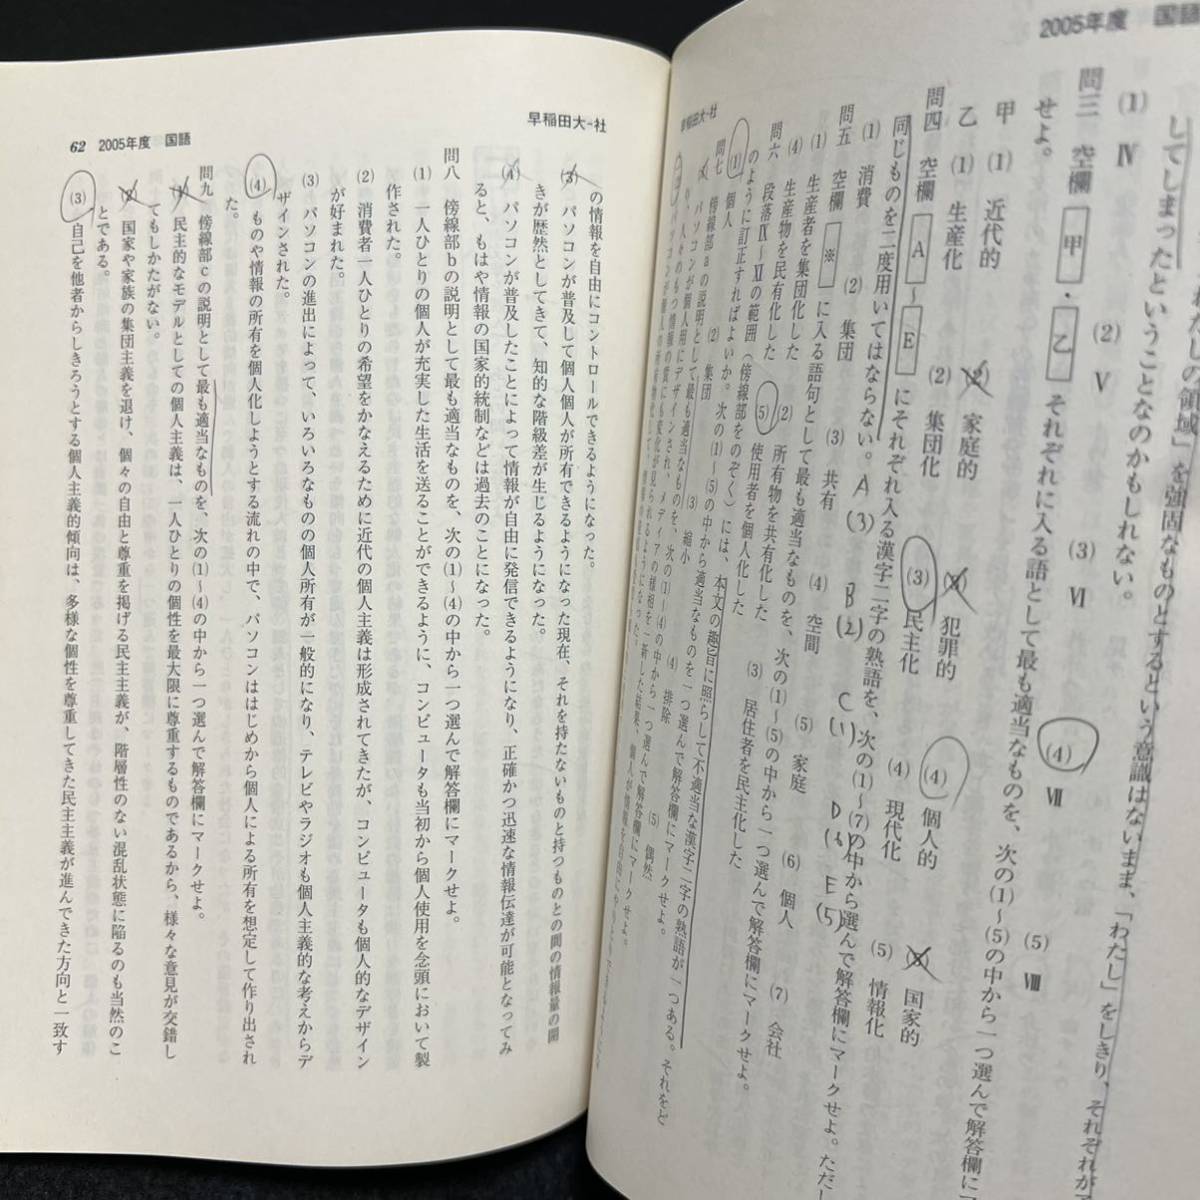 2005年度 国語
してしまったということなのかもしれない。
の領域」を強固なものとするという意識はないまま、「わたし」をしきり、それぞれが
(1) Ⅳ (2) Ⅴ (3) Ⅵ (4) Ⅶ (5) Ⅷ
問三 空欄 甲 ・ 乙 それぞれに入る語として最も適当なものを、次の(1)～(5)の中から一つ選んで解答欄にマ
せよ。
甲 (1) 近代的 (2) 家庭的 犯罪的 (4) 個人的 国家的
乙 (1) 生産化 (2) 集団化 (3) 民主化 (4) 現代化 (5) 情報化
問四 空欄 A ～ E にそれぞれ入る漢字二字の熟語を、次の(1)～(7)の中から選んで解答欄にマークせよ。ただし
同じものを二度用いてはならない。
A (3) B (2) C (1) D (4) E (5)
(1) 消費 (2) 集団 (3) 共有 (4) 空間 (5) 家庭 (6) 個人 (7) 会社
問五 空欄 ※ に入る語句として最も適当なものを、次の(1)～(5)の中から一つ選んで解答欄にマークせよ。
(1) 生産者を集団化した (2) 所有物を共有化した (3) 居住者を民主化した
(4) 生産物を民有化した (5) 使用者を個人化した
問六 段落Ⅸ～Ⅺの範囲(傍線部をのぞく)には、本文の趣旨に照らして不適当な漢字二字の熟語が一つある。それをど
のように訂正すればよいか。次の(1)～(5)の中から適当なものを一つ選んで解答欄にマークせよ。
(1) 個人 (2) 集団 (3) 縮小 (4) 排除 (5) 偶然
問七 傍線部aの説明として最も適当なものを、次の(1)～(4)の中から一つ選んで解答欄にマークせよ。
早稲田大-社
早稲田大-社
62 2005年度 国語
の情報を自由にコントロールできるようになった。
(3) パソコンが普及して個人個人が所有できるようになった現在、それを持たないものと持つものとの間の情報量の開
きが歴然としてきて、知的な階級差が生じるようになった。
(4) パソコンが普及したことによって情報が自由に発信できるようになり、正確かつ迅速な情報伝達が可能となってみ
ると、もはや情報の国家的統制などは過去のことになった。
問八 傍線部bの説明として最も適当なものを、次の(1)～(4)の中から一つ選んで解答欄にマークせよ。
(1) 一人ひとりの個人が充実した生活を送ることができるように、コンピュータも当初から個人使用を念頭において製
作された。
(2) 消費者一人ひとりの希望をかなえるために近代の個人主義は形成されてきたが、コンピュータも個人的なデザイン
が好まれた。
(3) パソコンの進出によって、いろいろなものの個人所有が一般的になり、テレビやラジオも個人主義的な考えからデ
ザインされた。
(4) ものや情報の所有を個人化しようとする流れの中で、パソコンははじめから個人による所有を想定して作り出され
た。
問九 傍線部cの説明として最も適当なものを、次の(1)～(4)の中から一つ選んで解答欄にマークせよ。
(1) 民主的なモデルとしての個人主義は、一人ひとりの個性を最大限に尊重するものであるから、様々な意見が交錯し
てもしかたがない。
(2) 国家や家族の集団主義を退け、個々の自由と尊重を掲げる民主主義が、階層性のない混乱状態に陥るのも当然のこ
とである。
(3) 自己を他者からしきろうとする個人主義的傾向は、多様な個性を尊重してきた民主主義が進んできた方向と一致す